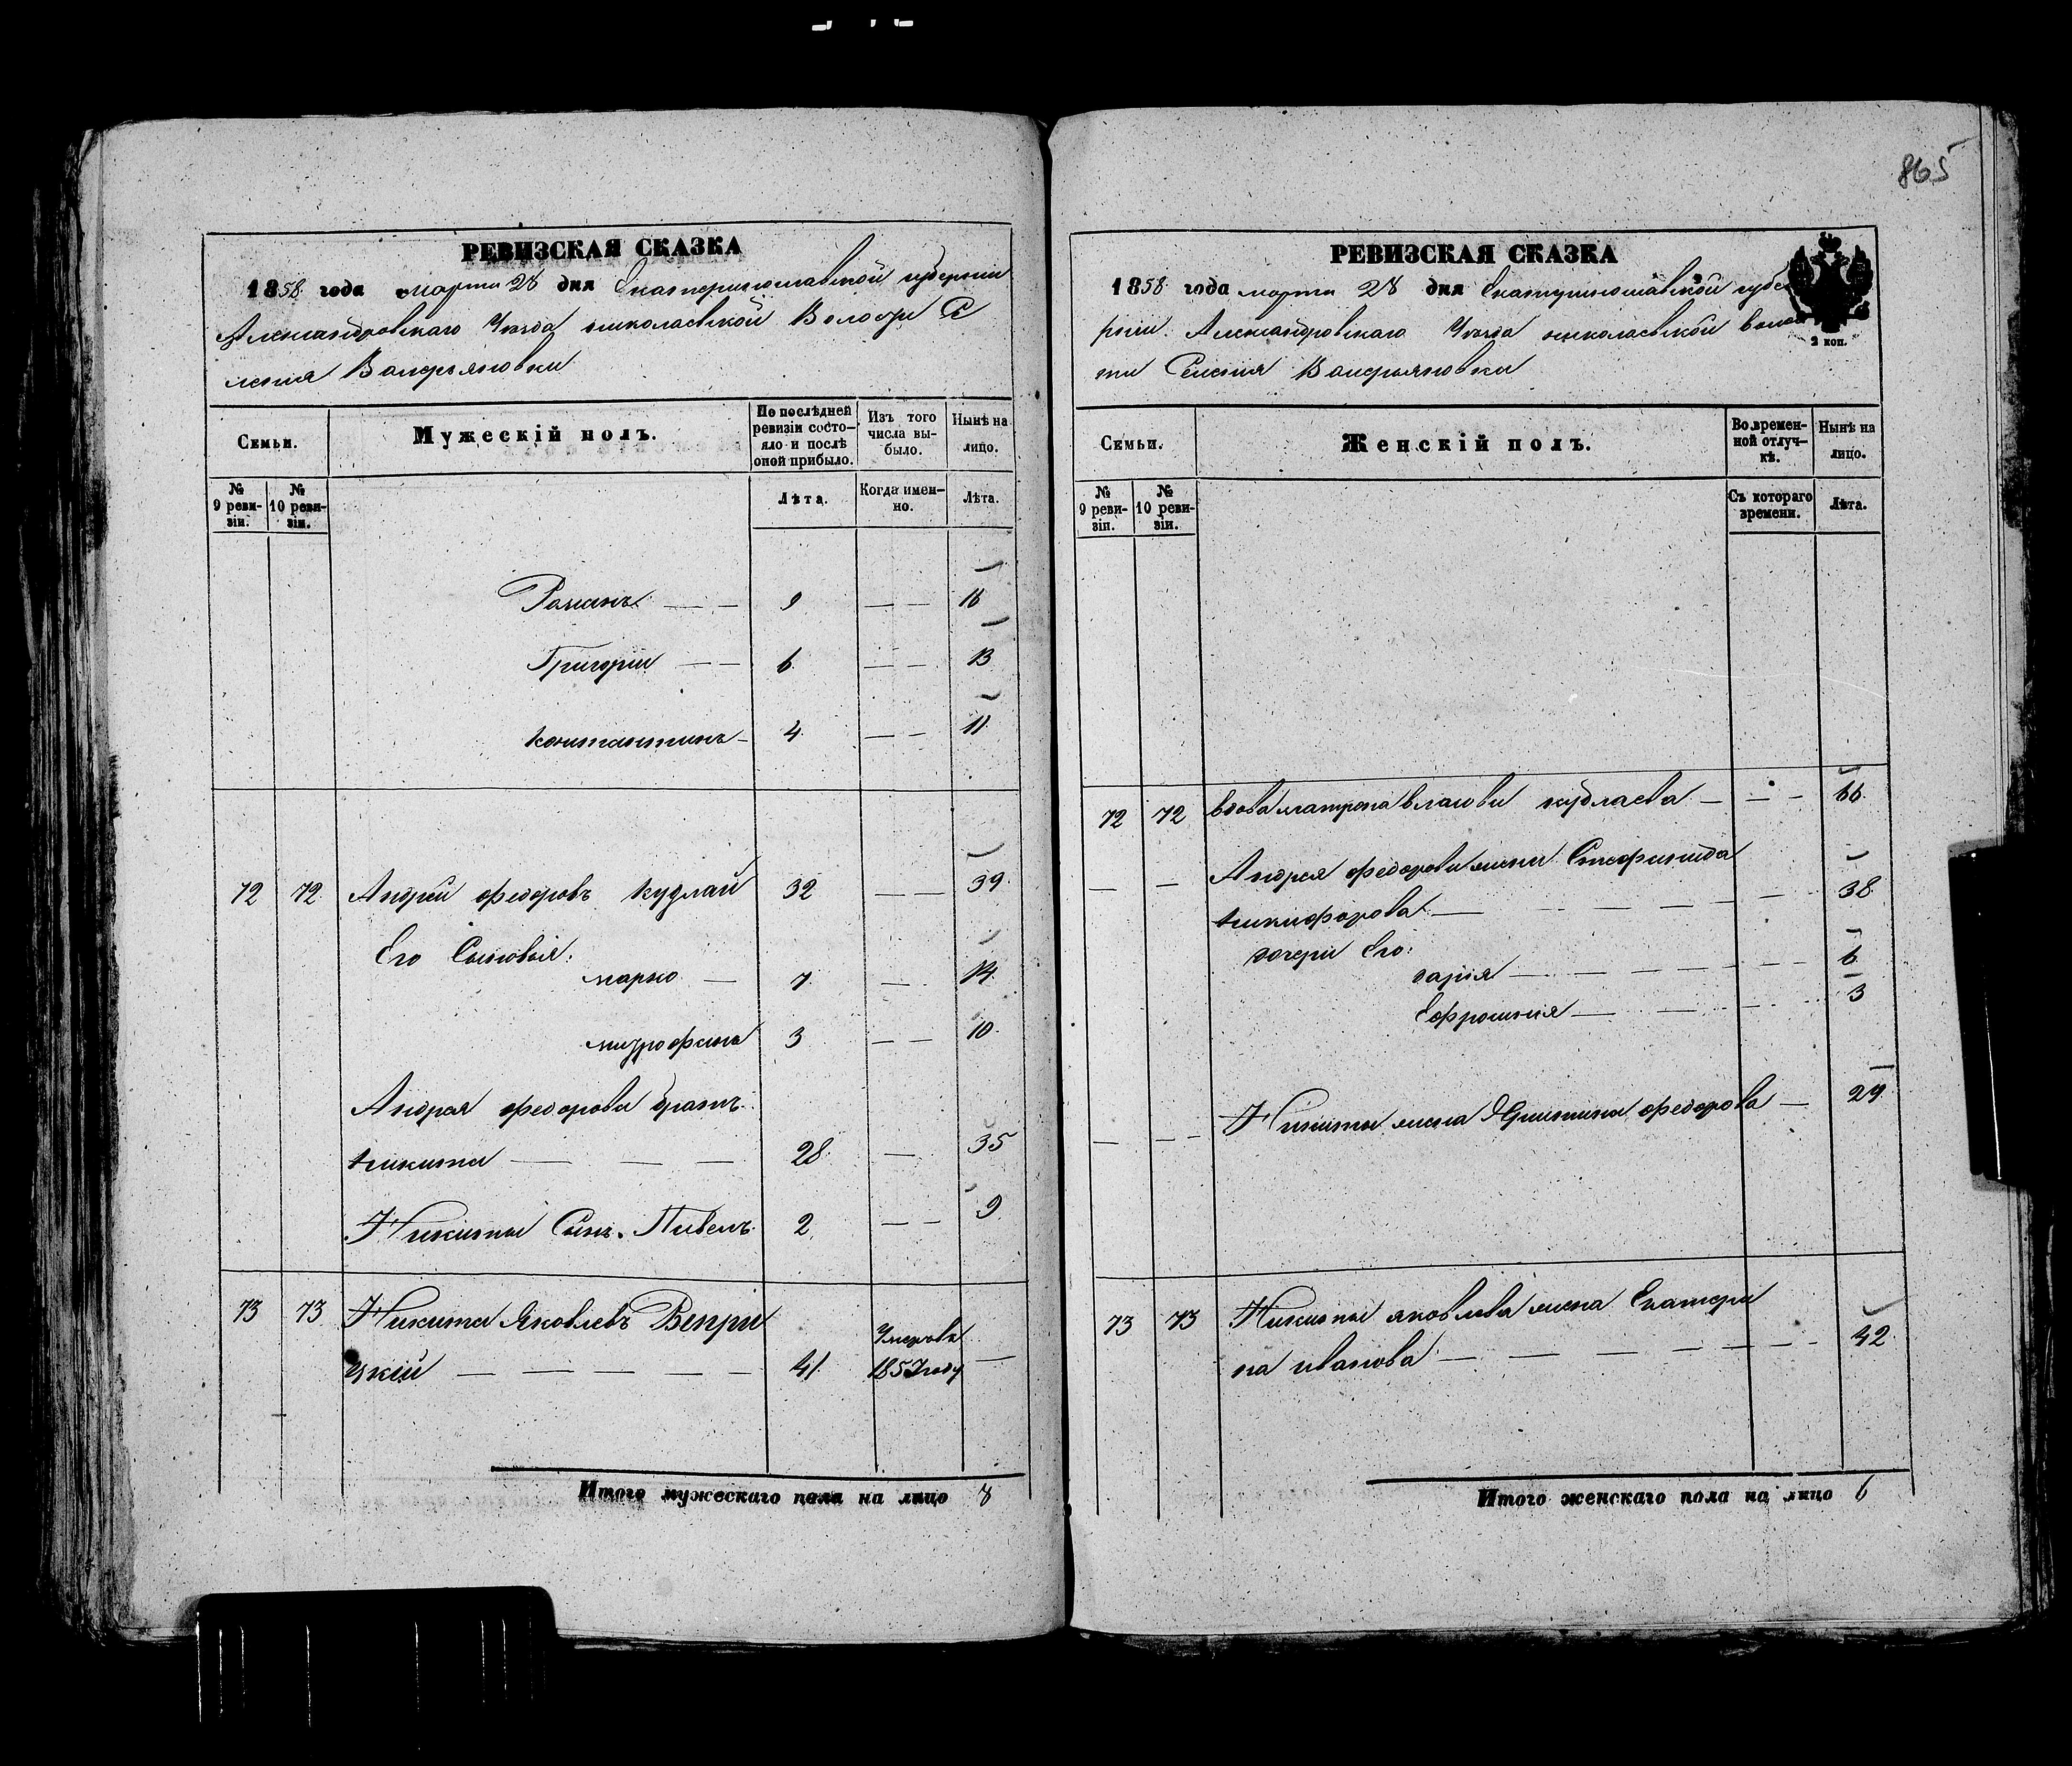 865
РЕВИЗСКАЯ СКАЗКА
1858 года марта 28 дня Екатеринославской губернии
Александровскаго Уезда николаевской Волости Се
ления Валерьяновки
Семьи.
Мужескій полъ.
По послѣдней ревизіи состояло и послѣ оной прибыло.
Изъ того числа выбыло.
Нынѣ на лицо.
№ 9 ревизіи.
№ 10 ревизіи.
Лѣта.
Когда именно.
Лѣта.
Романъ — — 9 — — 16
Григории — — 6 — — 13
константинъ — 4 — — 11
72 72 Андрей федоровъ кудлай 32 — — 39
Его Сыновья:
марко — 7 — 14
митрофанъ 3 — — 10
Андрея федорова братъ
никита — — — 28 — 35
Никиты Сынъ Павелъ 2 — — 9
73 73 Никита Яковлевъ Вепри
цкій — — — — — 41 Умеръ въ 1857 году —
Итого мужескаго пола на лицо 8
РЕВИЗСКАЯ СКАЗКА
1858 года марта 28 дня Екатеринославской губе
рнии Александровскаго Уезда николаевской волос
ти Селения Валерьяновки
2 коп.
Семьи.
Женскій полъ.
Во временной отлучкѣ.
Нынѣ на лицо.
№ 9 ревизіи.
№ 10 ревизіи.
Съ котораго времени.
Лѣта.
72 72 вдова матрона власова кудлаева — — — 66
— — Андрея федорова жена
никифорова — — — — — 38
дочери Его:
дария — — — — — — 6
Ефросиния — — — — 3
— — — Никиты жена федорова — 29
73 73 Никиты яковлева жена Екатери
на иванова — — — — — — 42
Итого женскаго пола на лицо 6